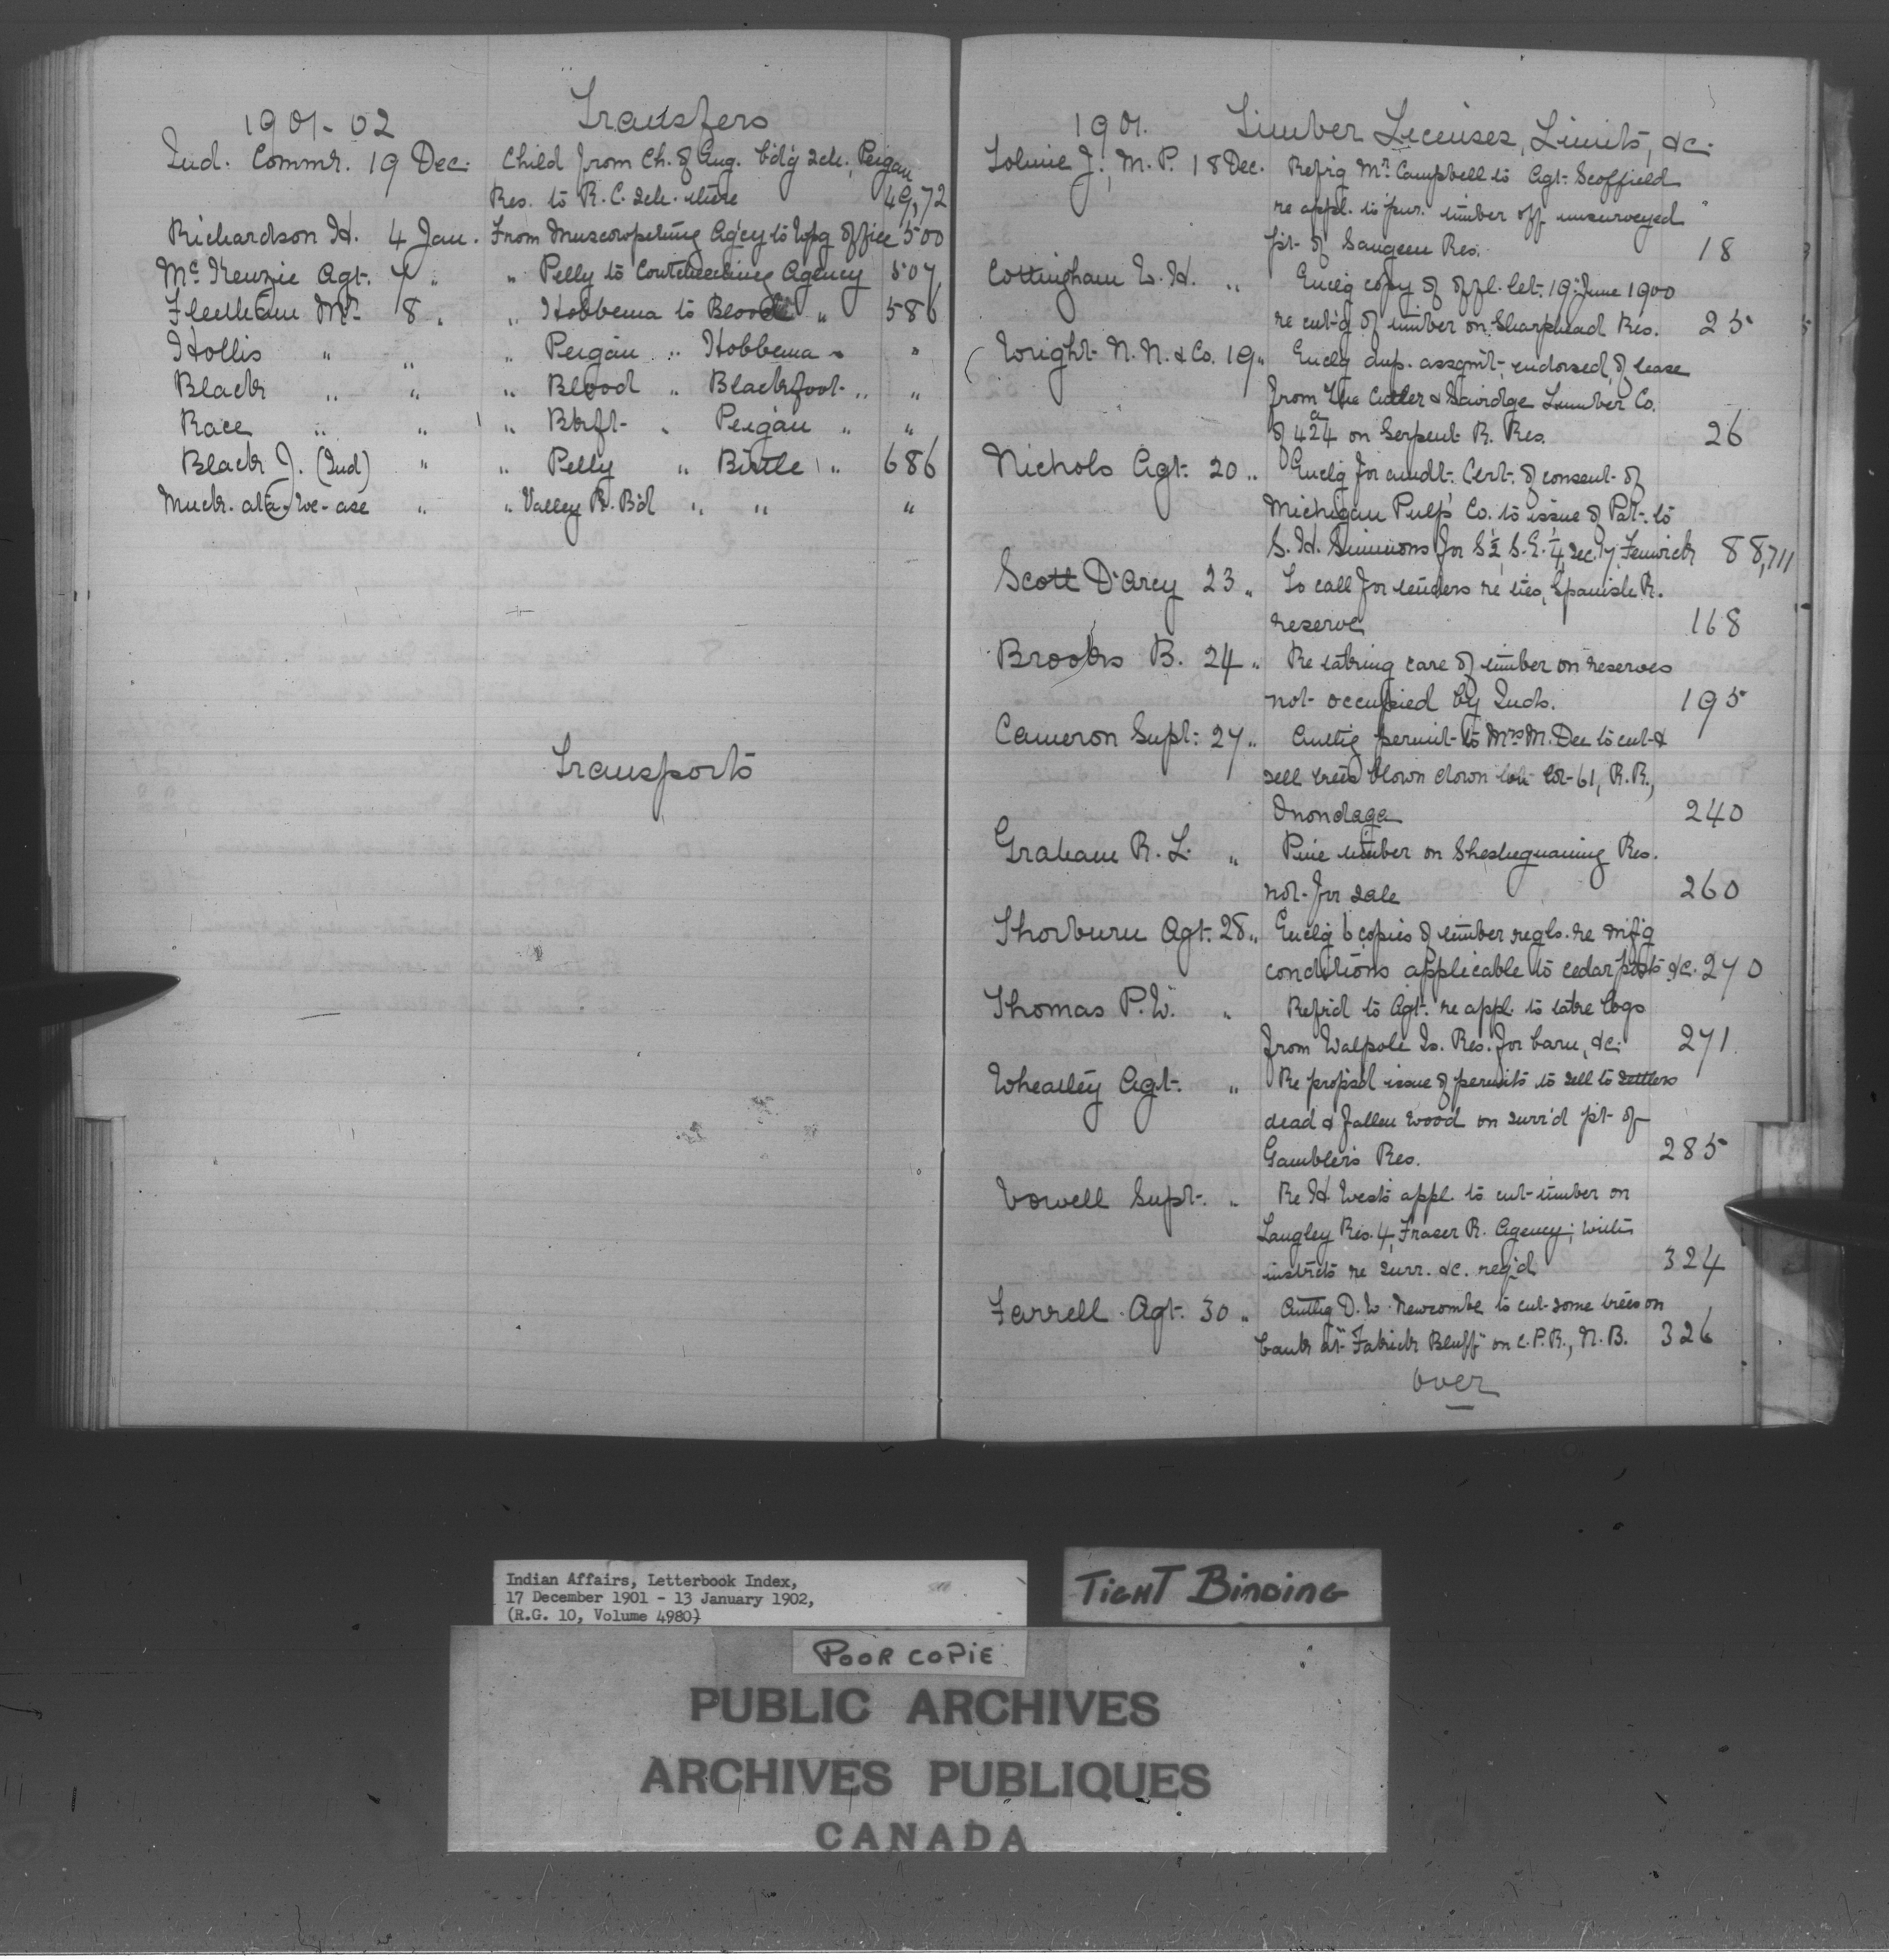 1901-02 Transfers
Ind. Commr. 19 Dec. Child from Ch. of Eng. b'd'g sch., Peigan
Res. to R.C. sch. there 49,72
Richardson H. 4 Jan. From Muscowpetung Ag'cy to Wpg office 500
McKenzie Agt. 7 " " Pelly to Coutcheeching Agency 507
Fleetham Mr. 8 " " Hobbema to Blood " 586
Hollis " " " Peigan " Hobbema " "
Black " " " Blood " Blackfoot " "
Race " " " Bkft. " Peigan " "
Black J. (Ind) " " Pelly " Birtle " 686
Muck-ata-we-ase " " Valley R. B'd " " "
Transports
1901. Timber Licenses, Limits, &c.
Tolmie J., M.P. 18 Dec. Ref'r'g Mr Campbell to Agt. Scoffield
re appl. to pur. timber off unsurveyed
pt. of Saugeen Res. 18
Cottingham W.H. " Encl'g copy of offl. let. 19 June 1900
re cut'g of timber on Sharphead Res. 25
Wright N.N. & Co. 19 " Encl'g dup. assgm't. endorsed, of lease
from The Cutler & Savidge Lumber Co.
of 424a on Serpent R. Res. 26
Nichols Agt. 20 " Encl'g for amdt. Cert. of consent of
Michigan Pulp Co. to issue of Pat. to
S.H. Simmons for S½ S.E.¼, Sec. 17, Fenwick 88,711
Scott D'Arcy 23 " To call for tenders re ties, Spanish R.
reserve 168
Brooks B. 24 " Re taking care of timber on reserves
not occupied by Inds. 195
Cameron Supt. 27 " Auth'g permit to Mrs M. Dee to cut &
sell trees blown down on lot 61, R.R.,
Onondaga 240
Graham R.L. " Pine timber on Sheshegwaning Res.
not for sale 260
Thorburn Agt. 28 " Encl'g 6 copies of timber regls. re m'f'g
conditions applicable to cedar posts &c. 270
Thomas P.W. " Ref'r'd to Agt. re appl. to take logs
from Walpole Is. Res. for barn, &c. 271
Wheatley Agt. " Re prop's'd issue of permits to sell to settlers
dead & fallen wood on surr'd pt. of
Gambler's Res. 285
Vowell Supt. " Re H. West's appl. to cut timber on
Langley Res. 4, Fraser R. Agency; with
instrcts re surr. &c. req'd 324
Farrell Agt. 30 " Auth'g D.W. Newcombe to cut some trees on
bank at " Bluff" on C.P.R., N.B. 326
over
Indian Affairs, Letterbook Index,
17 December 1901 - 13 January 1902,
(R.G. 10, Volume 4980)
TIGHT BINDING
POOR COPIE
PUBLIC ARCHIVES
ARCHIVES PUBLIQUES
CANADA